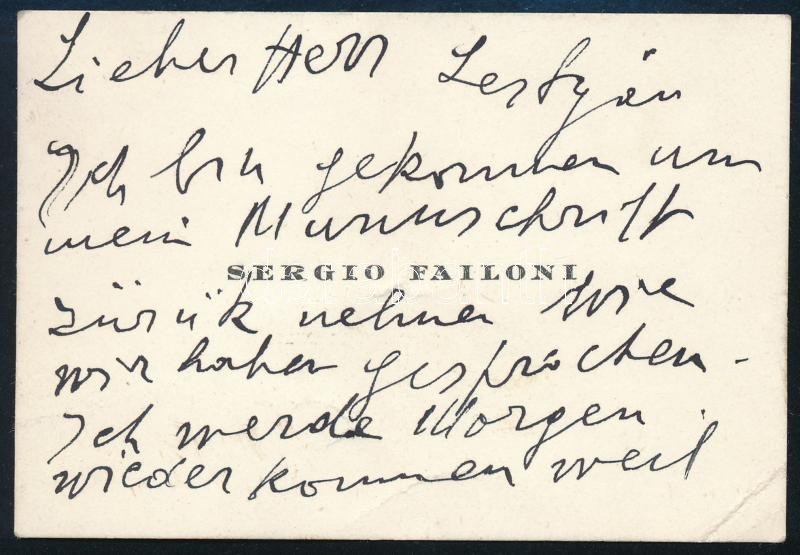 Lieber Herr Lestyán
Ich bin gekommen um
mein Manuschrift
SERGIO FAILONI
zürük nehmen wie
wir haben gesprochen -
Ich werde Morgen
wieder kommen weil